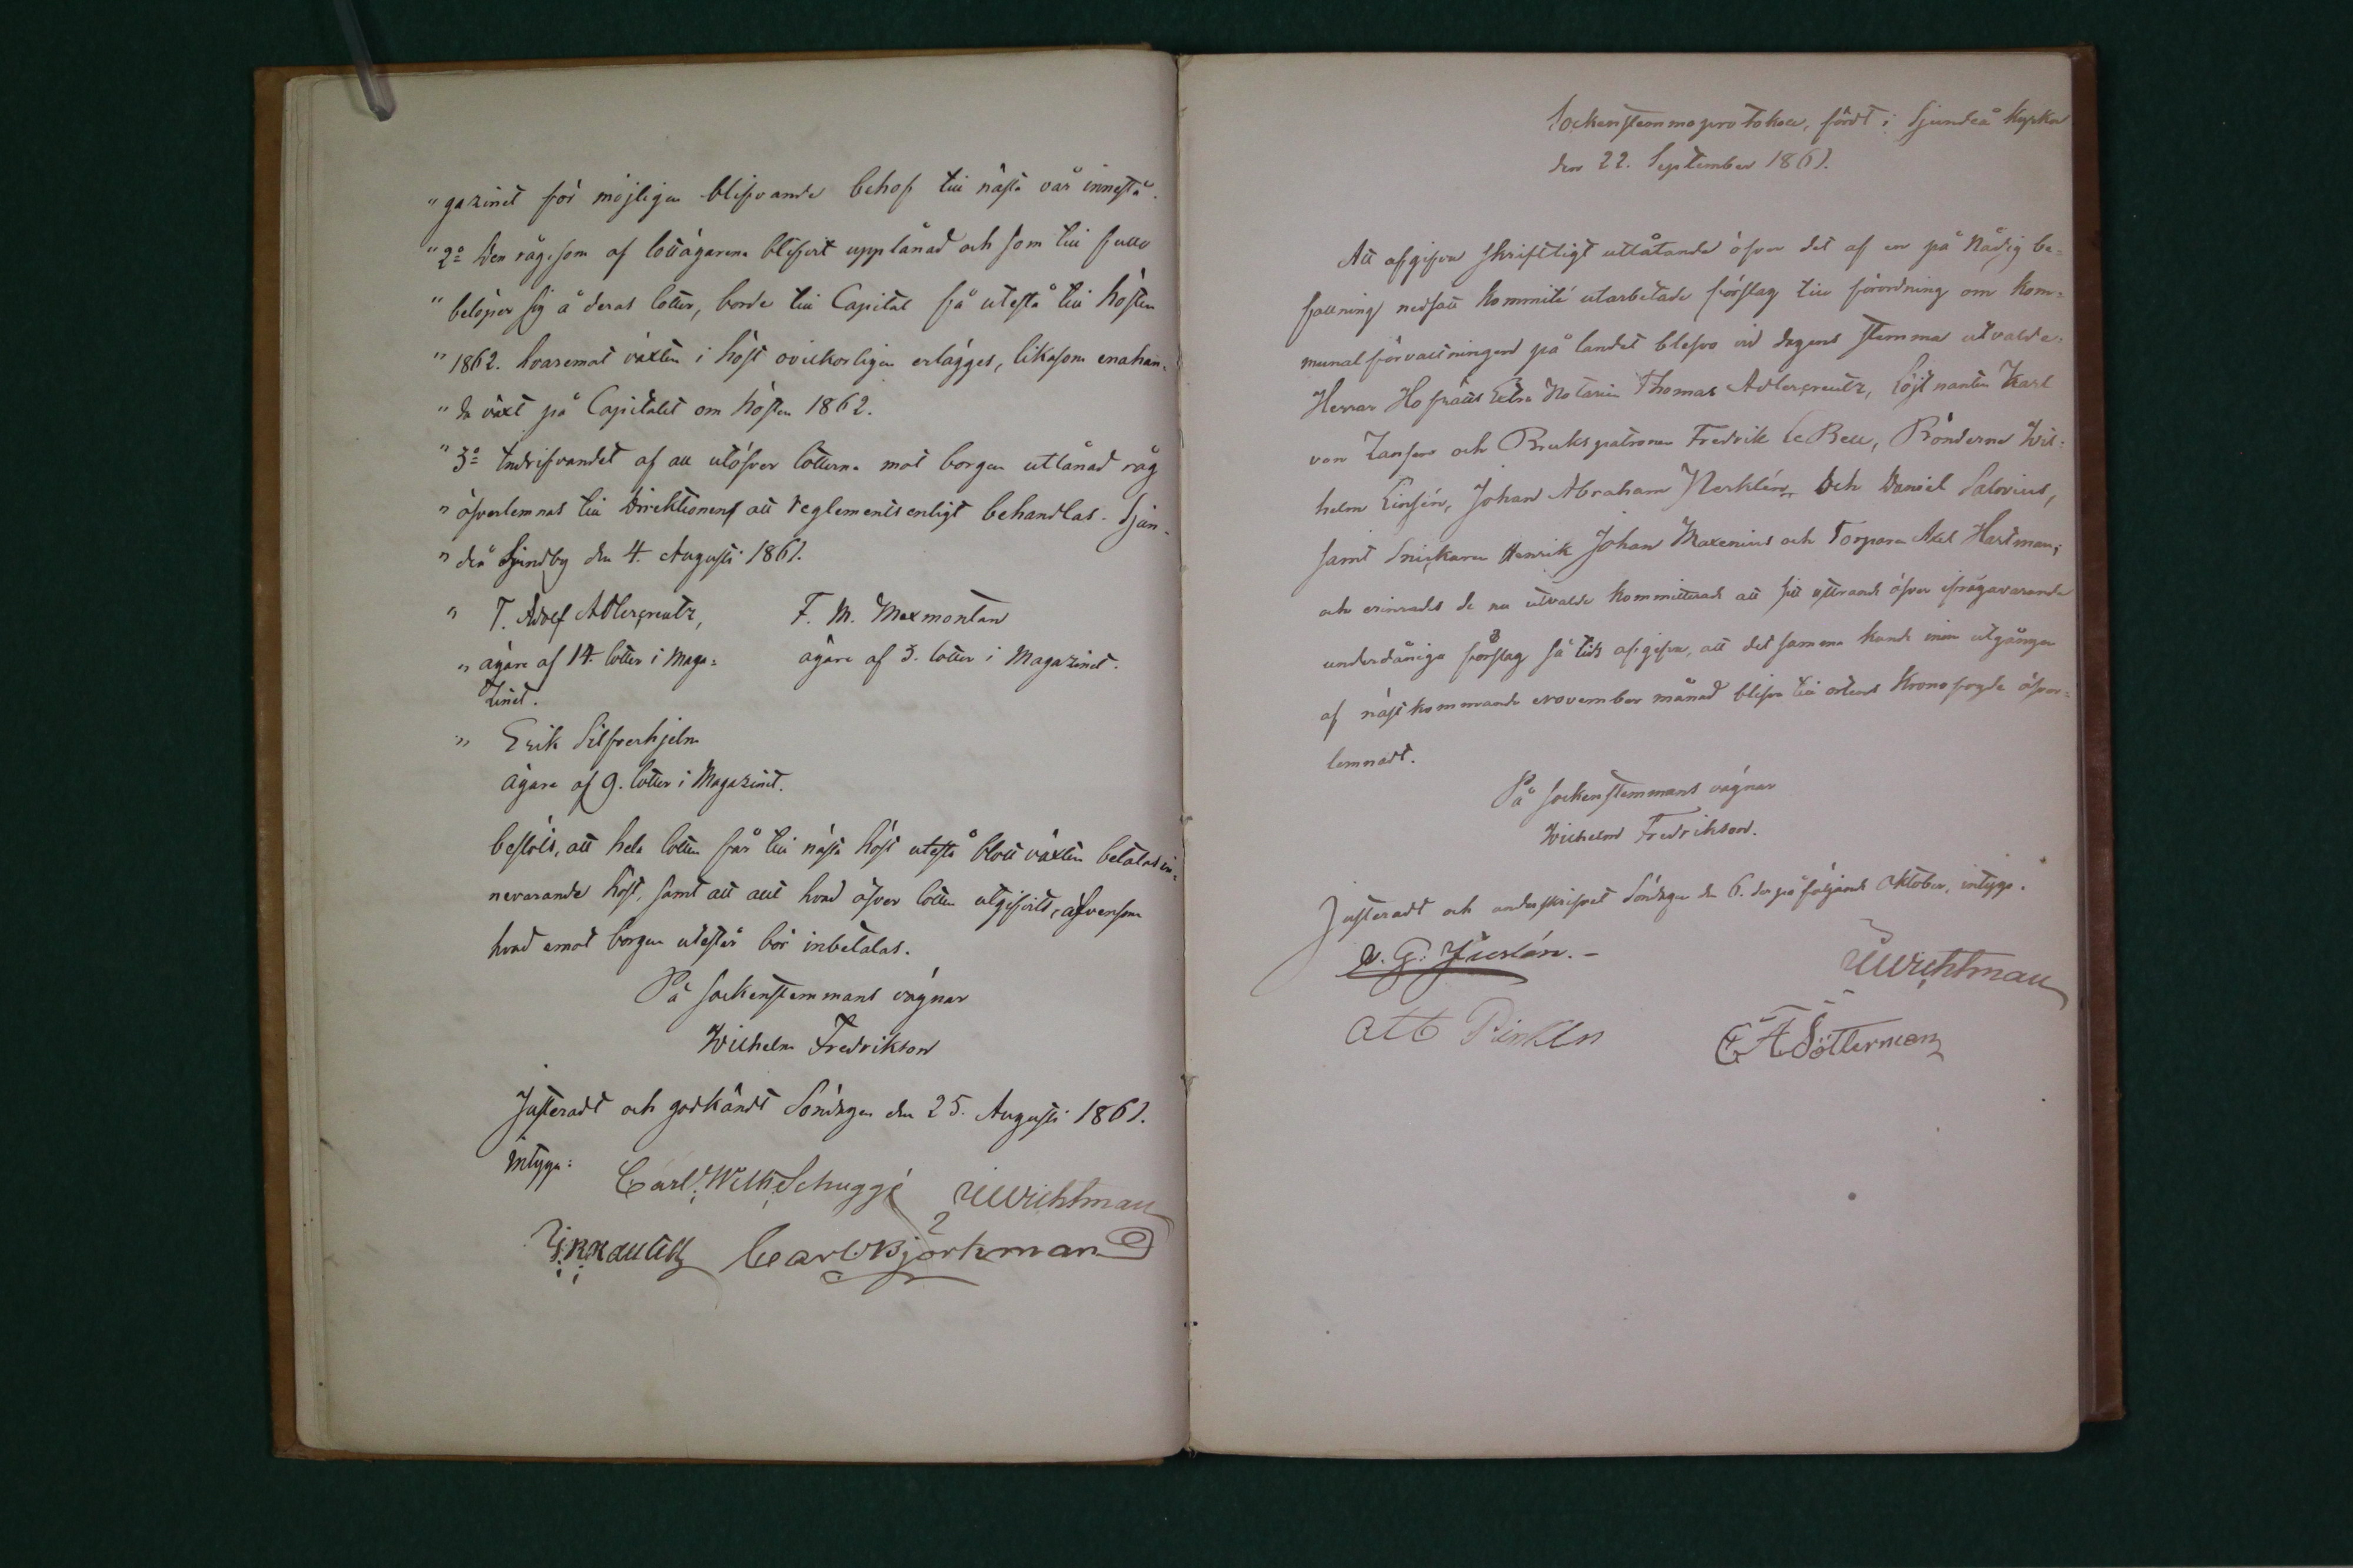 " gazinet för möjligen blifvande behof till nästa vår innestå.
" 2o Den råg, som af lottägarena blifvit upplånad och som till fullo
" belöper sig å deras lotter, borde till Capital få utestå till hösten
" 1862. hvaremot växten i höst ovilkorligen erlägges, likasom enahan-
" da växt på Capitalet om hösten 1862.
" 3o Indrifvandet af all utöfver lotterna mot borgen utlånad råg
" öfverlemnas till Direktionen att reglementsenligt behandlas. Sjun-
" deå Sjundby den 4. Augusti 1861.
" T. Adolf Adlercreutz, F. M. Maxmontan
" ägare af 14. lotter i Maga= ägare af 3. lotter i Magazinet.
zinet.
" Erik Silfverhjelm
ägare af 9. lotter i Magazinet.
beslöts, att hela lotten får till nästa höst utestå blott växten betalas in-
nevarande höst, samt att allt hvad öfver lotten utgifvits, äfvensom
hvad emot borgen utestår bör inbetalas.
På sockenstemmans vägnar
Wilhelm Fredrikson
Justeradt och godkändt Söndagen den 25. Augusti 1861.
intyga:
Carl Wilh. Schuggé Wichtman
Carl Björkman
Sockenstemmoprotokoll, fördt i Sjundeå Kyrka
den 22. September 1861.
Att afgifva skriftligt utlåtande öfver det af en på Nådig be-
fallning nedsatt kommité utarbetade förslag till förordning om kom-
munalförvaltningen på landet blefvo vid dagens stemma utvalde:
Herrar Hofrätts Extra Notarien Thomas Adlercreutz, Löjtnanten Karl
von Zansen och Bruks patronen Fredrik Le Bell, Bönderne Wil-
helm Linsén, Johan Abraham Nerklén och Daniel Salovius,
samt Snickaren Henrik Johan Maxenius och Torparen Axel Hartman;
och erinrades de nu utvalde kommitterade att sitt yttrande öfver ifrågavarande
underdåniga förslag så tids afgifva, att det samma kunde innan utgången
af nästkommande November månad blifva till ortens Kronofogde öfver-
lemnadt.
På sockenstemmans vägnar
Wilhelm Fredrikson.
Justeradt och underskrifvet Söndagen den 6. derpåföljande Oktober, intyga.
Wichtman
Söllerman